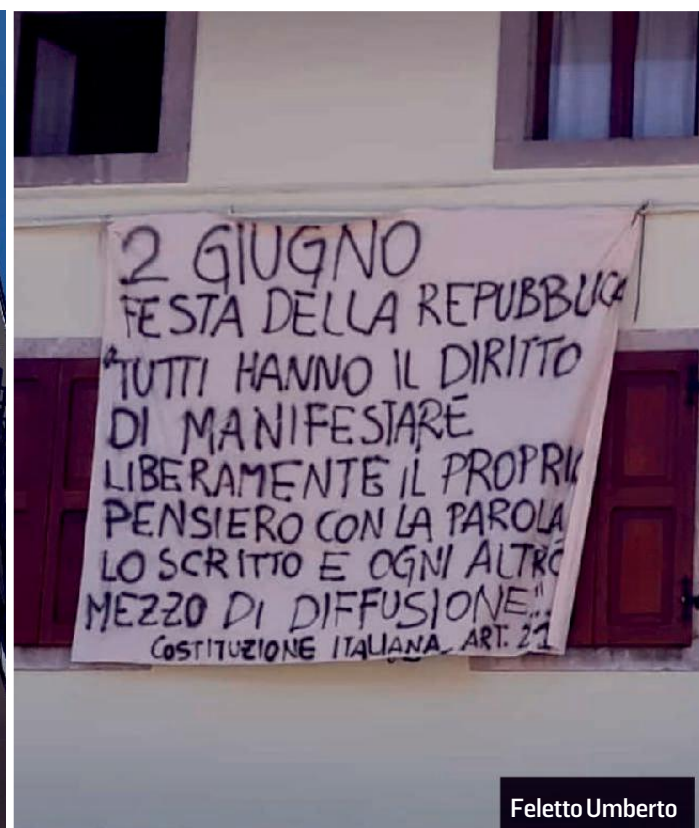 2 GIUGNO
FESTA DELLA REPUBBLICA
"TUTTI HANNO IL DIRITTO
DI MANIFESTARE
LIBERAMENTE IL PROPRIO
PENSIERO CON LA PAROLA
LO SCRITTO E OGNI ALTRO
MEZZO DI DIFFUSIONE..."
COSTITUZIONE ITALIANA ART. 21
Feletto Umberto